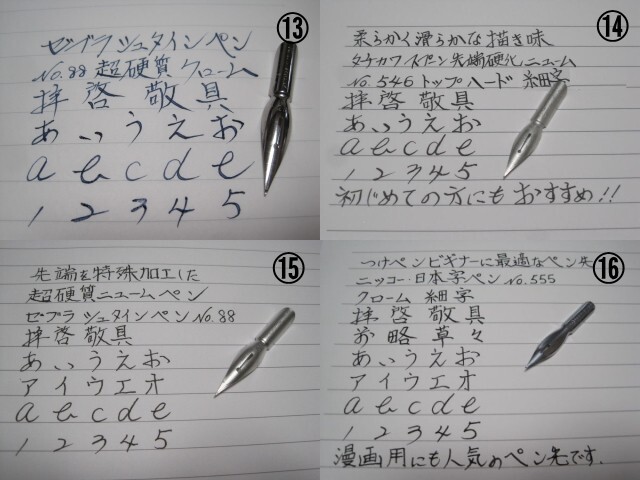 ⑬
ゼブラ シュタインペン
No.88 超硬質 クローム
拝啓 敬具
あいうえお
a b c d e
1 2 3 4 5
⑭
柔らかく滑らかな描き味
タチカワ スプーンペン先端硬化ニューム
No.546 トップヘード 細字
拝啓 敬具
あいうえお
a b c d e
1 2 3 4 5
初じめての方にもおすすめ!!
⑮
先端を特殊加工した
超硬質ニュームペン
ゼブラ シュタインペン No.88
拝啓 敬具
あいうえお
アイウエオ
a b c d e
1 2 3 4 5
⑯
つけペンビギナーに最適なペン先
ニッコー・日本字ペン No.555
クローム 細字
拝啓 敬具
前略 草々
あいうえお
アイウエオ
a b c d e
1 2 3 4 5
漫画用にも人気のペン先です.